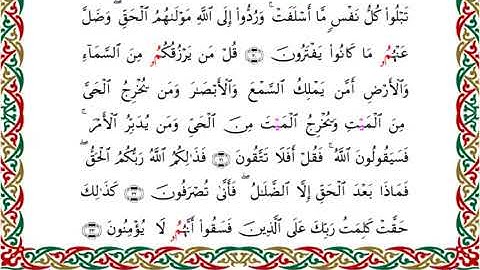 تَبْلُواْ كُلُّ نَفْسٍ مَّا أَسْلَفَتْ ۚ وَرُدُّواْ إِلَى ٱللَّهِ مَوْلَىٰهُمُ ٱلْحَقِّ ۖ وَضَلَّ
عَنْهُمُۥ مَا كَانُواْ يَفْتَرُونَ ٣٠ قُلْ مَن يَرْزُقُكُمُۥ مِنَ ٱلسَّمَآءِ
وَٱلْأَرْضِ أَمَّن يَمْلِكُ ٱلسَّمْعَ وَٱلْأَبْصَٰرَ وَمَن يُخْرِجُ ٱلْحَىَّ
مِنَ ٱلْمَيْتِ وَيُخْرِجُ ٱلْمَيْتَ مِنَ ٱلْحَىِّ وَمَن يُدَبِّرُ ٱلْأَمْرَ ۚ
فَسَيَقُولُونَ ٱللَّهُ ۚ فَقُلْ أَفَلَا تَتَّقُونَ ٣١ فَذَٰلِكُمُ ٱللَّهُ رَبُّكُمُ ٱلْحَقُّ ۖ
فَمَاذَا بَعْدَ ٱلْحَقِّ إِلَّا ٱلضَّلَٰلُ ۖ فَأَنَّىٰ تُصْرَفُونَ ٣٢ كَذَٰلِكَ
حَقَّتْ كَلِمَتُ رَبِّكَ عَلَى ٱلَّذِينَ فَسَقُواْ أَنَّهُمُۥ لَا يُؤْمِنُونَ ٣٣